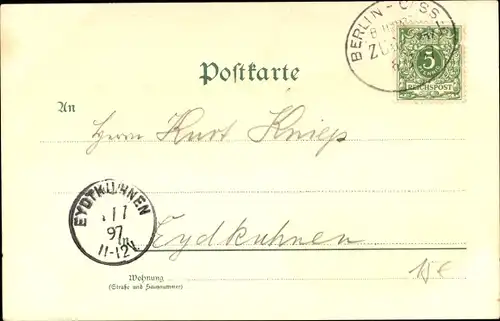 BERLIN - C
ZUG
5
REICHSPOST
Postkarte
An
Herrn Kurt Kniep
EYDTKUHNEN
1 1
97
11-12
Eydkuhnen
Wohnung
(Straße und Hausnummer)
15€